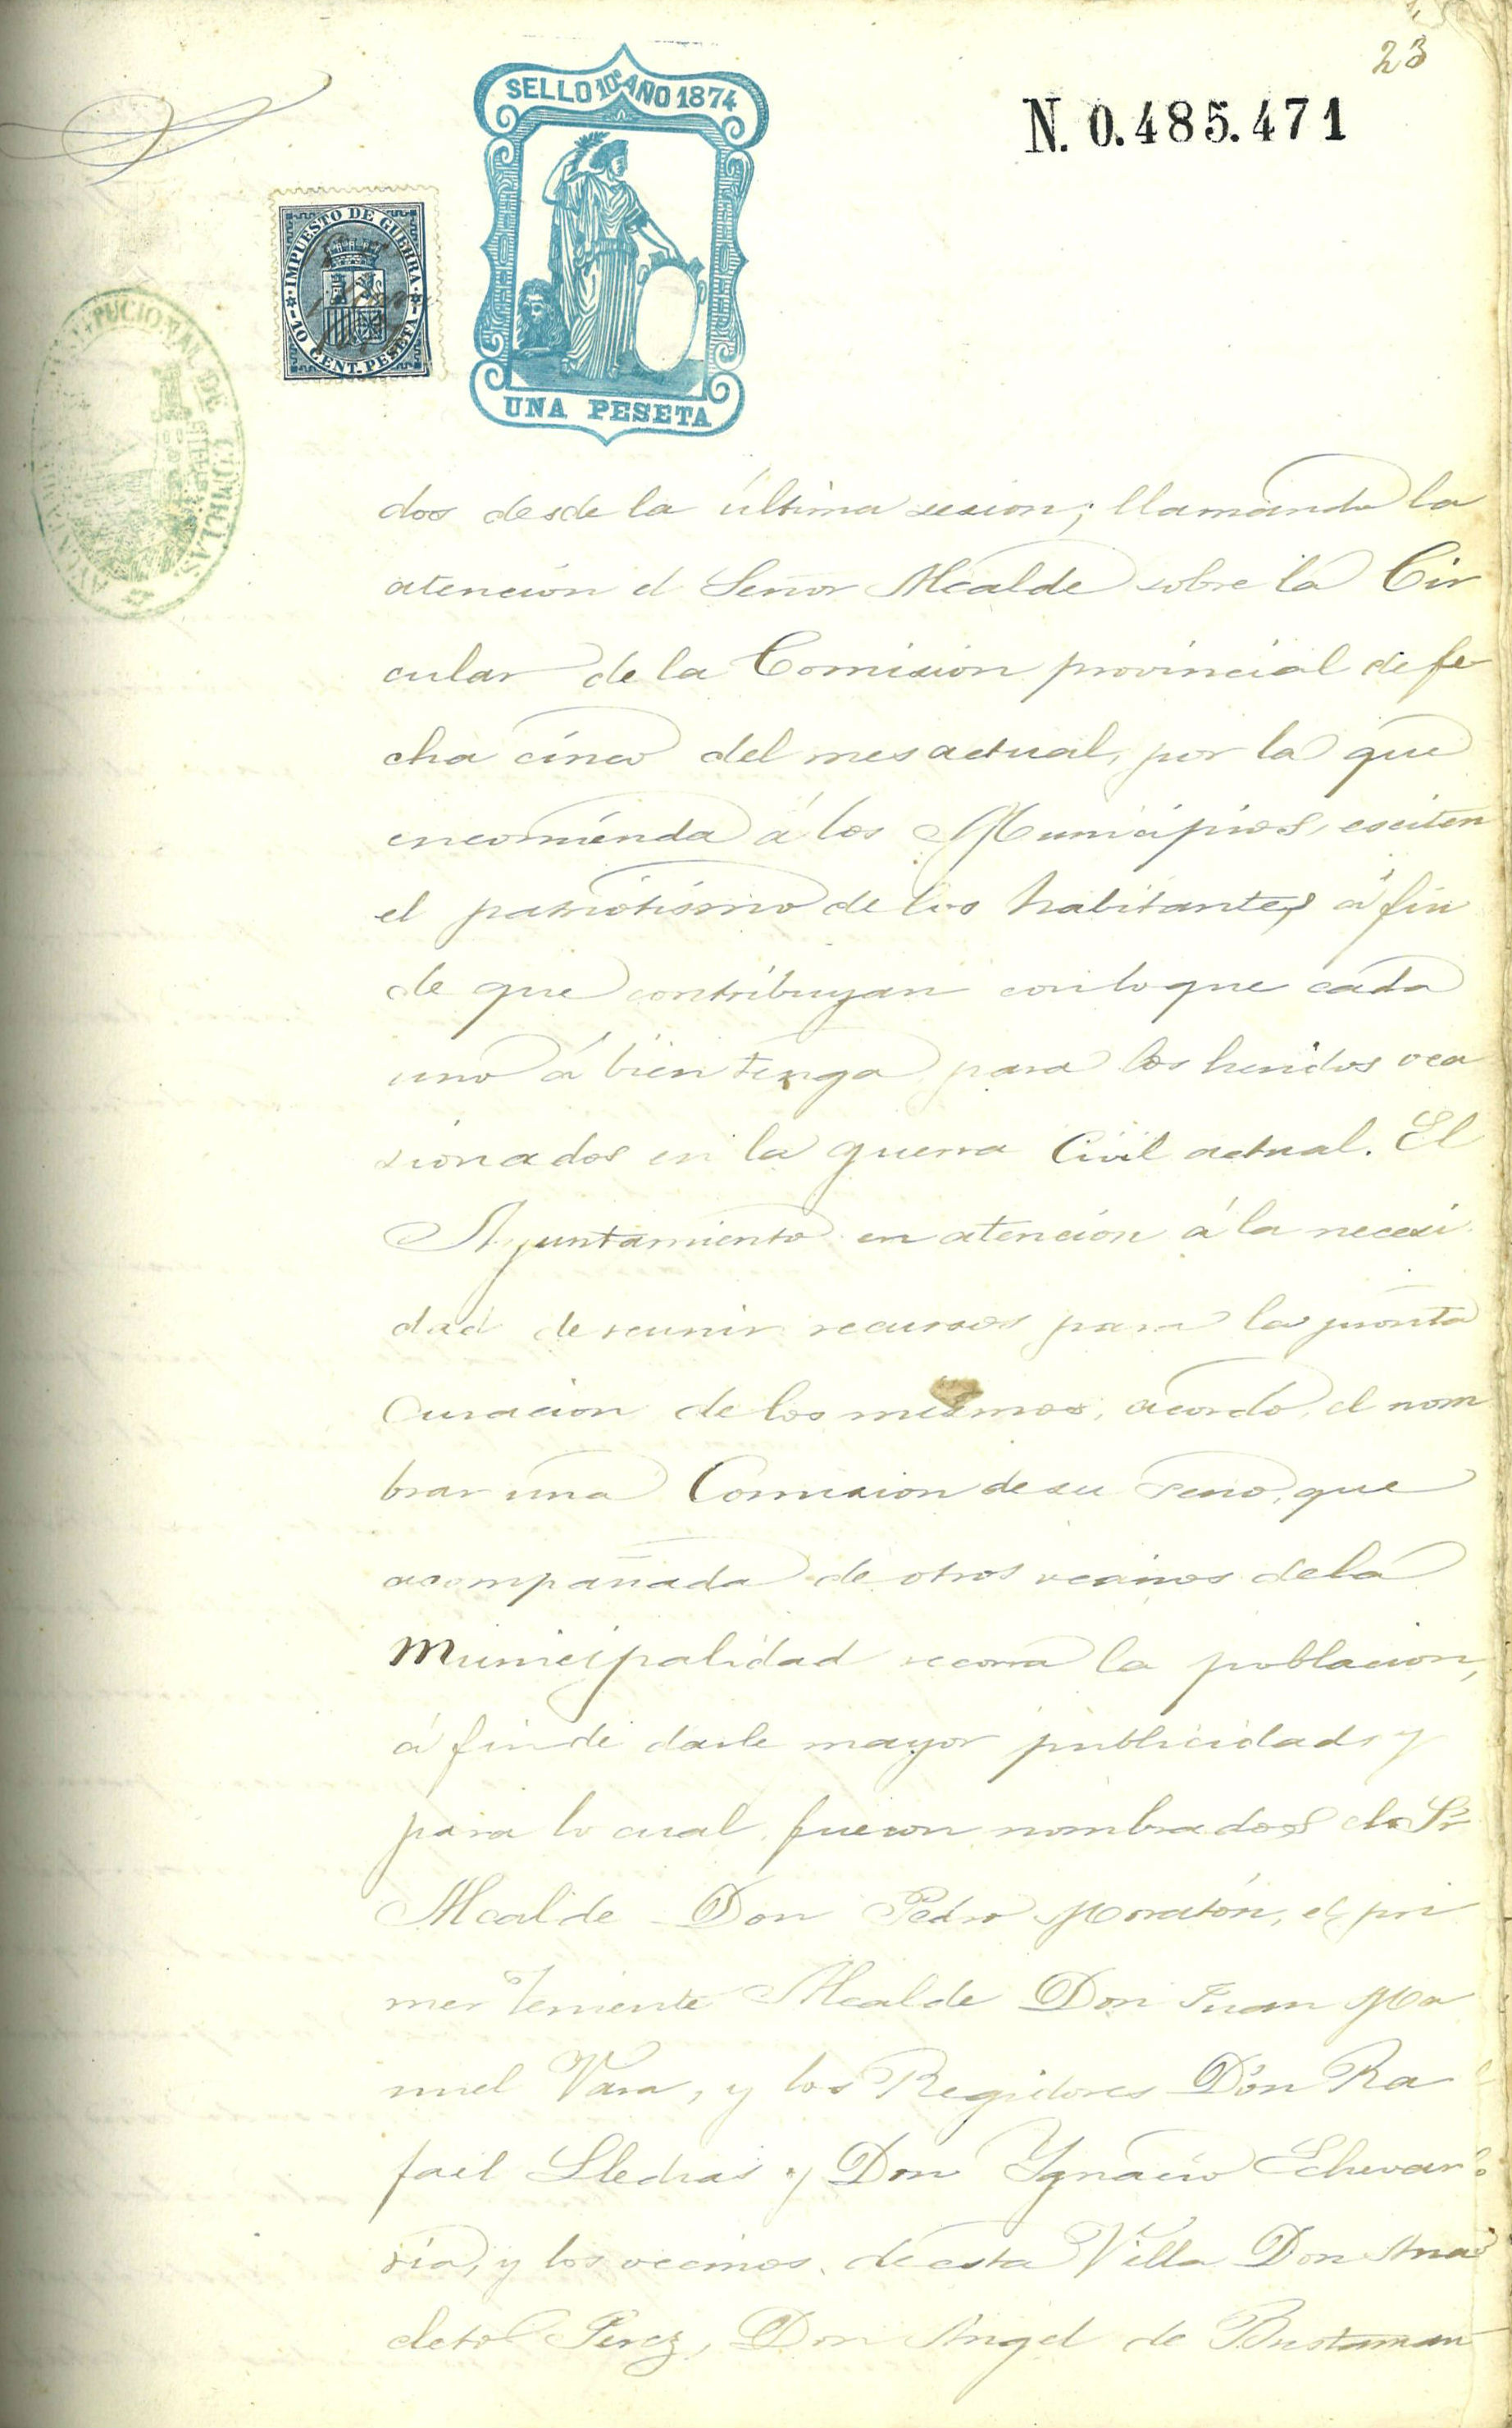 23
N. 0.485.471
SELLO 10º AÑO 1874
UNA PESETA
IMPUESTO DE GUERRA
10 CENT. PESETA
CONSTITUCIONAL DE COMILLAS
dos desde la última sesion; llamando la
atencion el Señor Alcalde sobre la Cir
cular de la Comision provincial de fe
cha cinco del mes actual, por la que
encomienda á los Municipios, esciten
el patriotismo de los habitantes á fin
de que contribuyan con lo que cada
uno á bien tenga para los heridos oca
sionados en la guerra Civil actual. El
Ayuntamiento en atencion á la necesi
dad de reunir recursos para la pronta
Curacion de los mismos, acordó el nom
brar una Comision de su seno, que
acompañada de otros vecinos de la
Municipalidad recorra la poblacion,
á fin de darle mayor publicidad y
para lo cual fueron nombrados el Sr
Alcalde Don Pedro Moratón, el pri
mer Teniente Alcalde Don Juan Ma
nuel Vara, y los Regidores Don Ra
fael Lledias y Don Ygnacio Echevar
ria, y los vecinos de esta Villa Don Ana
cleto Perez, Don Angel de Bustaman